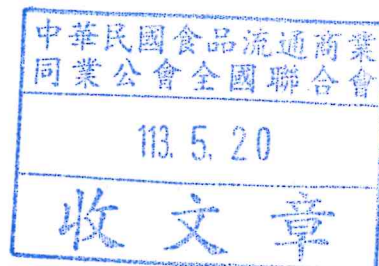 中華民國食品流通商業
同業公會全國聯合會
113. 5. 20
收文章